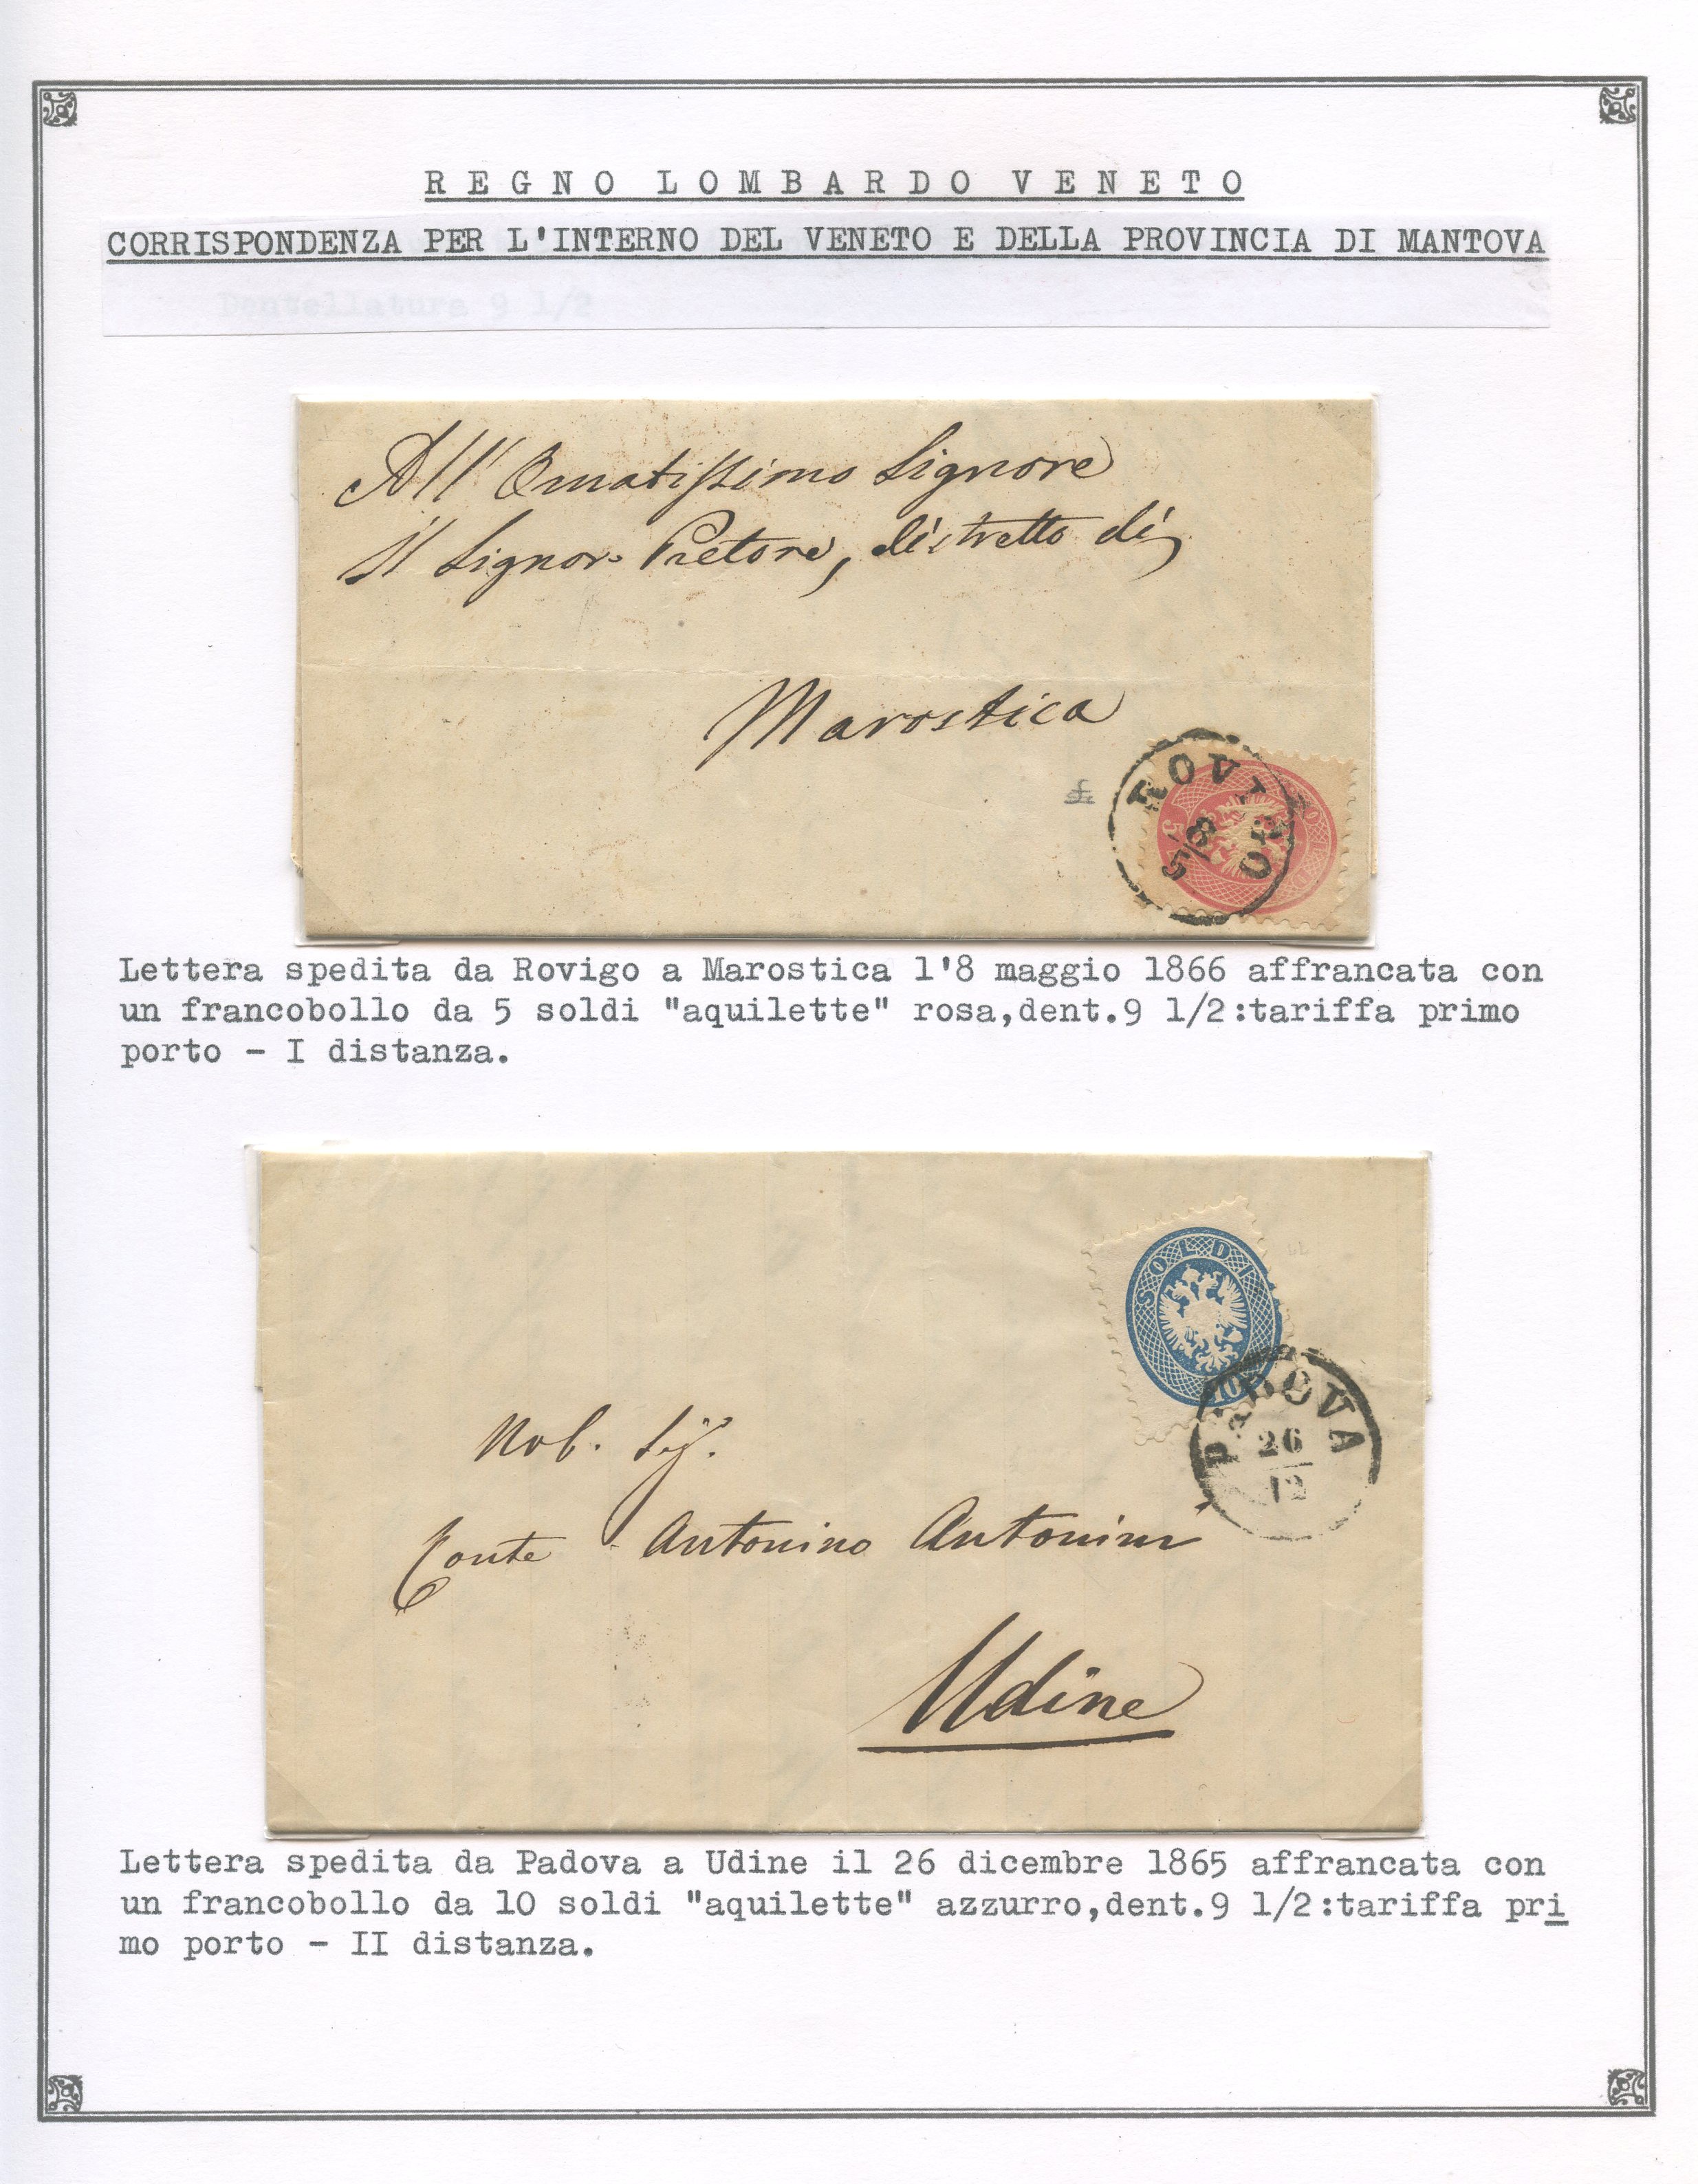 REGNO LOMBARDO VENETO
CORRISPONDENZA PER L'INTERNO DEL VENETO E DELLA PROVINCIA DI MANTOVA
Dentellatura 9 1/2
All' Ornatissimo Signore
Il Signor Pretore, distretto di
Marostica
ROVIGO
8/5
Lettera spedita da Rovigo a Marostica l'8 maggio 1866 affrancata con
un francobollo da 5 soldi "aquilette" rosa,dent.9 1/2:tariffa primo
porto - I distanza.
SOLDI
10
PADOVA
26
12
Nob. Sig.
Conte Antonino Antonini
Udine
Lettera spedita da Padova a Udine il 26 dicembre 1865 affrancata con
un francobollo da 10 soldi "aquilette" azzurro,dent.9 1/2:tariffa pri
mo porto - II distanza.